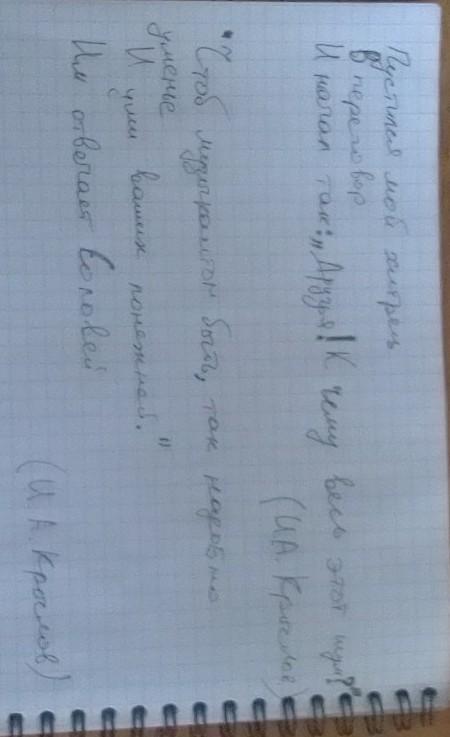 Пустился мой хитрец
в переговор
И начал так: „Друзья! К чему весь этот шум?"
(И.А. Крылов)
"Чтоб музыкантом быть, так надобно
уменье
И уши ваших понежней."
Им отвечает Соловей
(И.А. Крылов)